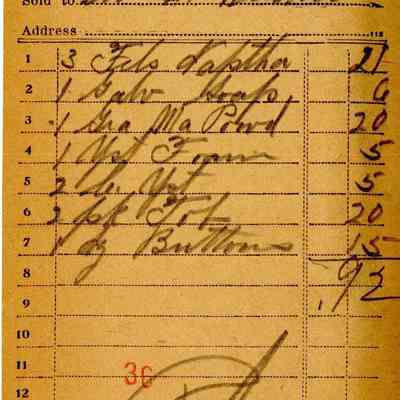 Sold to
Address 112
1 3 Fels Naptha 21
2 1 Galv Soap 6
3 1 Gra Ma Powd 20
4 1 Yst Foam 5
5 2 Yst 5
6 2 pk Tob 20
7 1 Buttons 15
8 .92
9
10
11 36
12